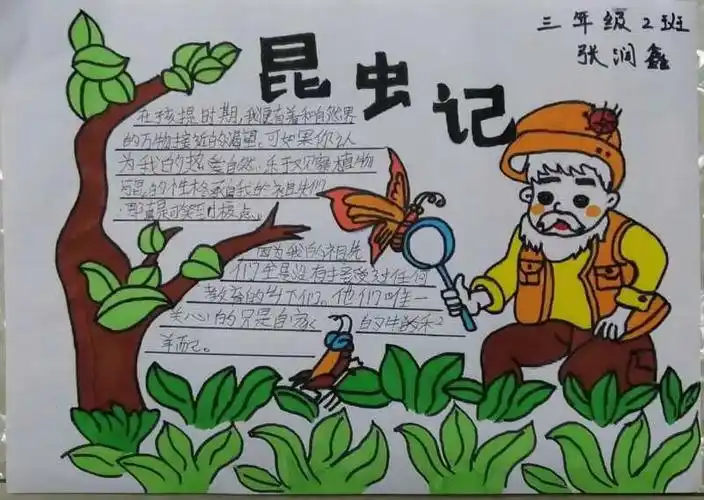 三年级2班
张润鑫
昆虫记
在孩提时期,我便有着和自然界
的万物接近的渴望。可如果你认
为我的热爱自然、乐于观察植物
昆虫的性格承自我的祖先们
那真是可笑到极点。
因为我的祖先
们全是没有接受过任何
教育的乡下们。他们唯一
关心的只是自家 的牛的和
羊而已。